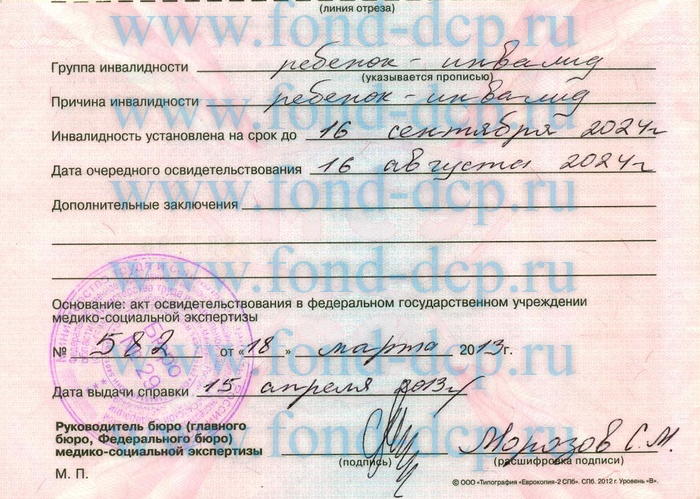 (линия отреза)
www.fond-dcp.ru
Группа инвалидности ребенок-инвалид
(указывается прописью)
Причина инвалидности ребенок-инвалид
www.fond-dcp.ru
Инвалидность установлена на срок до 16 сентября 2024г
Дата очередного освидетельствования 16 августа 2024г
www.fond-dcp.ru
Дополнительные заключения
www.fond-dcp.ru
Основание: акт освидетельствования в федеральном государственном учреждении
медико-социальной экспертизы
№ 582 от «18» марта 2013г.
Бюро
29
www.fond-dcp.ru
Дата выдачи справки 15 апреля 2013г
www.fond-dcp.ru
Руководитель бюро (главного
бюро, Федерального бюро)
медико-социальной экспертизы Морозов С.М.
(подпись) (расшифровка подписи)
М. П.
© ООО «Типография «Еврокопия-2 СПб». СПб. 2012 г. Уровень «В».